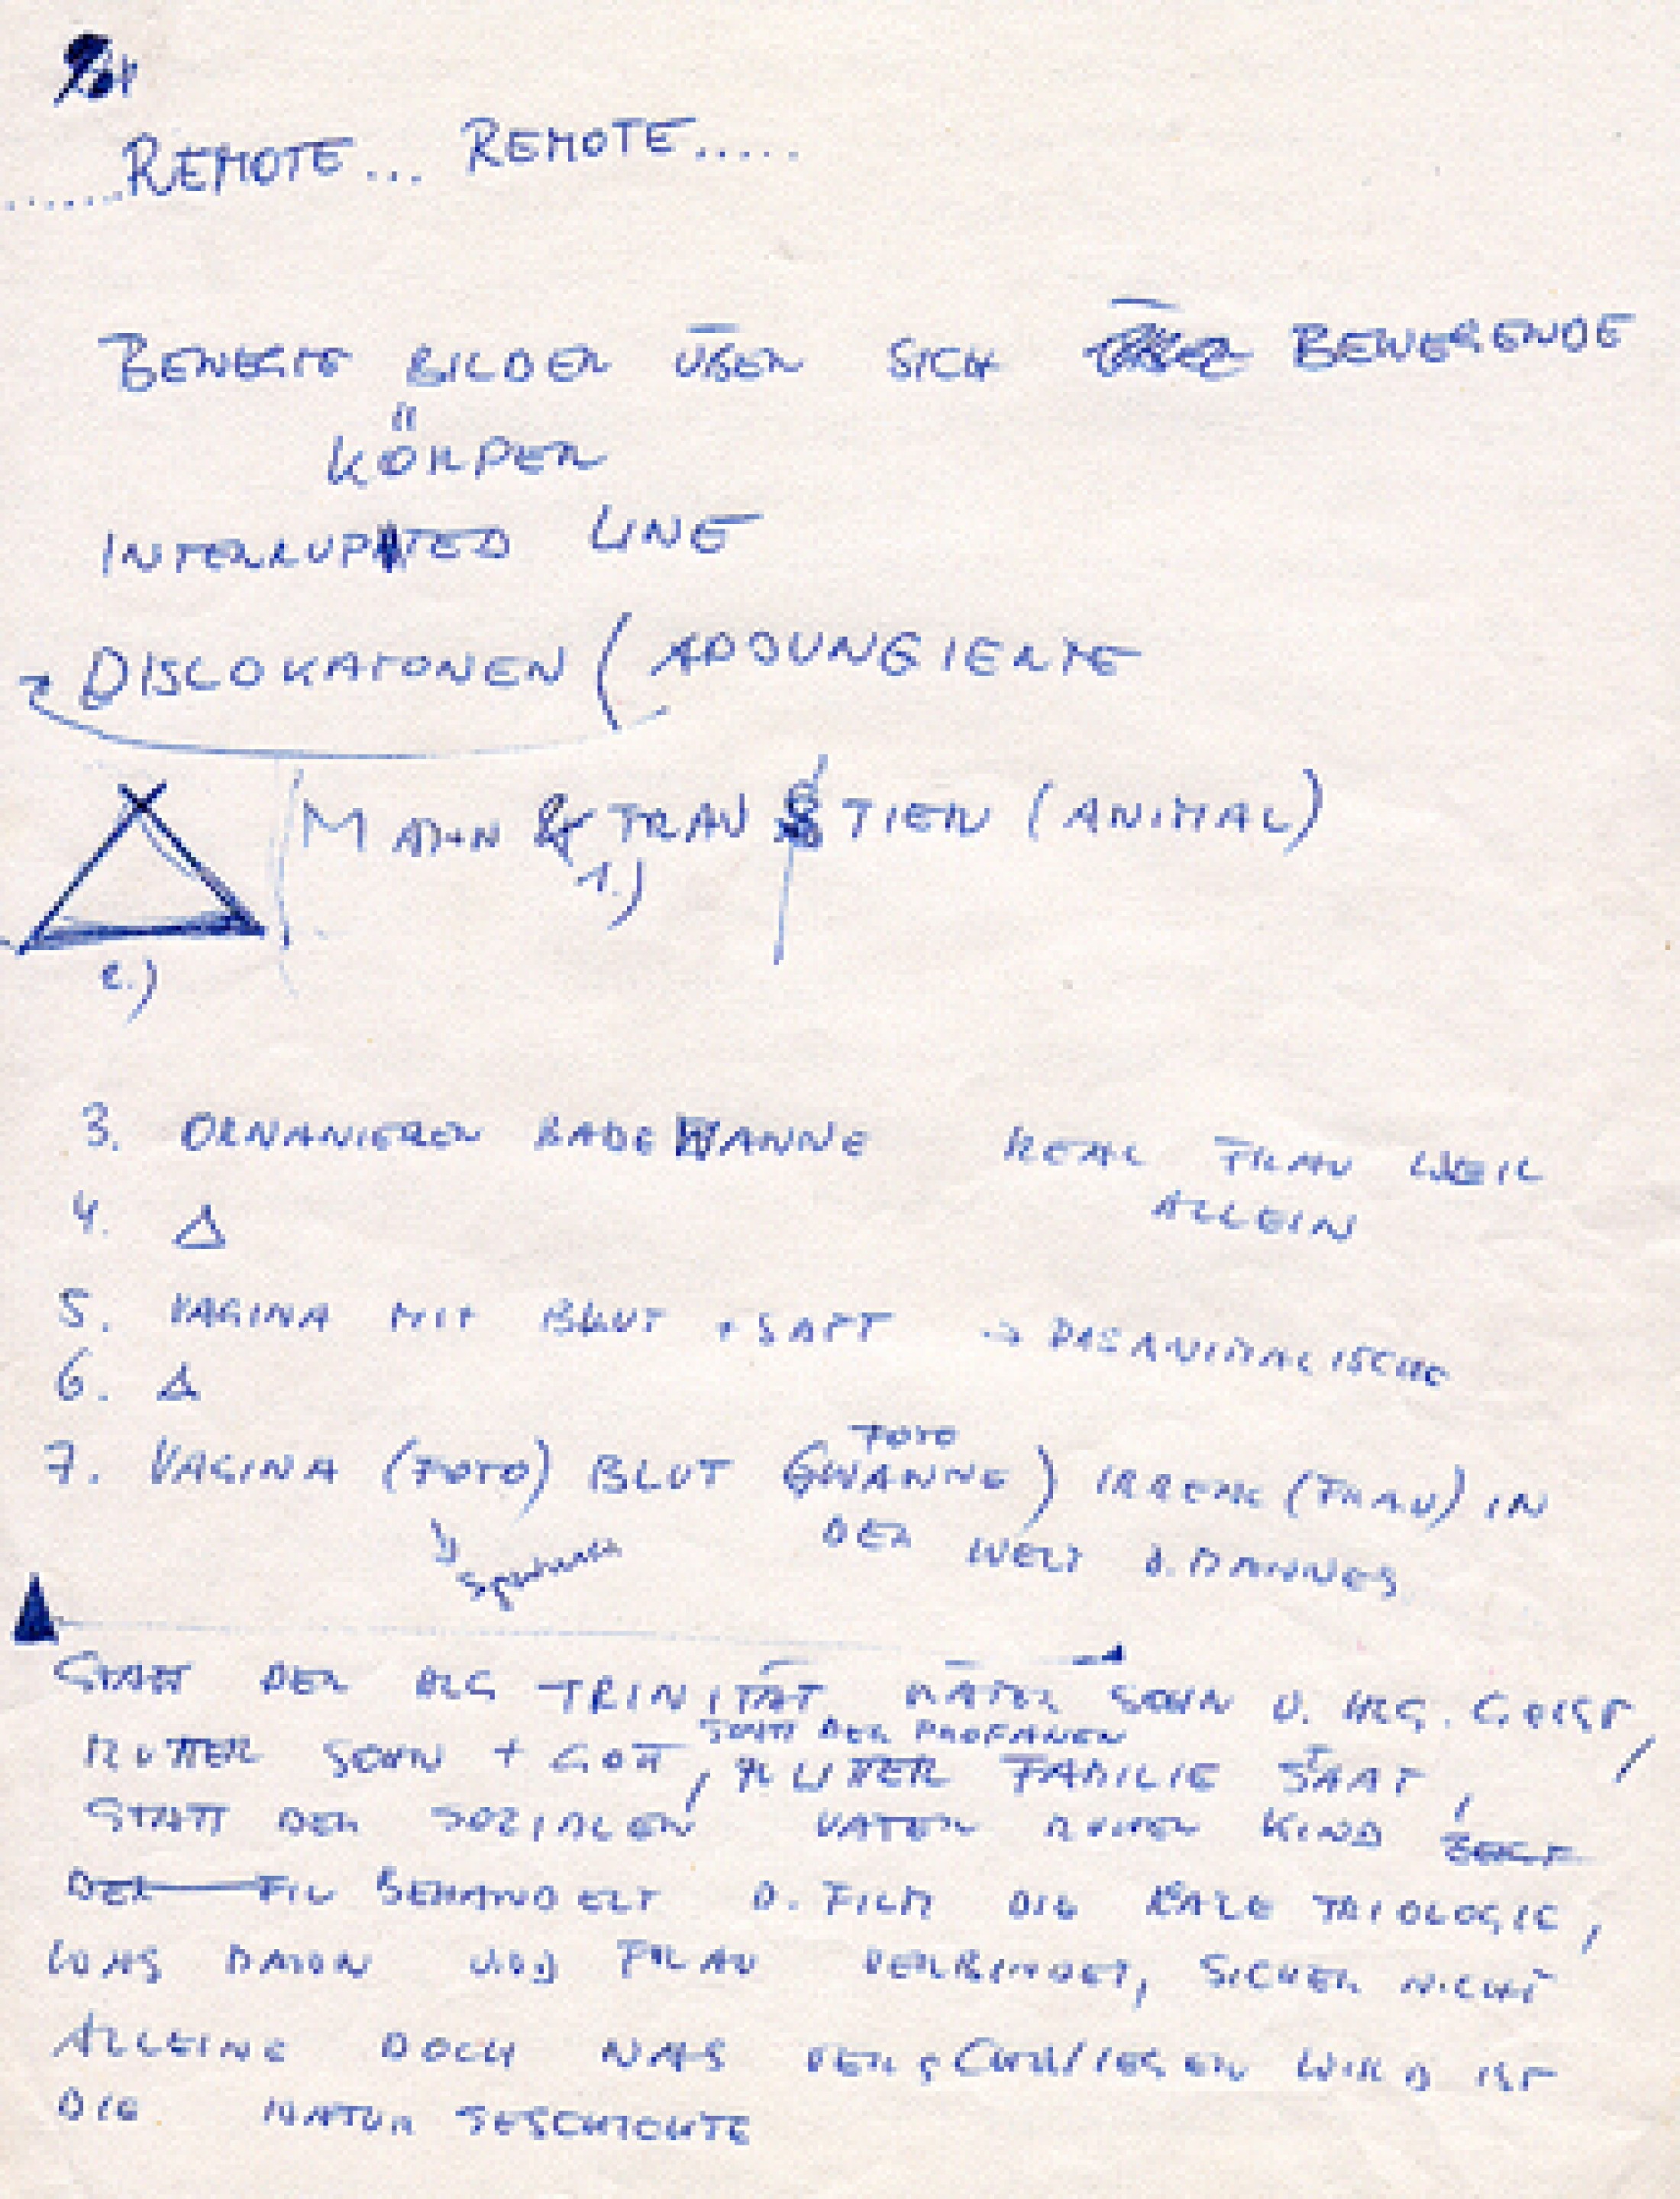 ......REMOTE... REMOTE.....
BEWEGTE BILDER ÜBER SICH BEWEGENDE
KÖRPER
INTERRUPTED LINE
DISLOKATONEN (ADJUNGIERTE
MANN & FRAU & TIER (ANIMAL)
1.)
2.)
3. ORNANIEREN BADEWANNE REAL FRAU WEIL
ALLEIN
4. Δ
5. VAGINA MIT BLUT + SAFT → DAS ANIMALISCHE
6. Δ
7. VAGINA (FOTO) BLUT (WANNE FOTO) IRREAL (FRAU) IN
DER WELT D. MANNES
STATT DER HLG TRINITÄT VATER SOHN U. HLG. GEIST,
MUTTER SOHN + GOTT, STATT DER PROFANEN MUTTER FAMILIE STAAT,
STATT DER SOZIALEN VATER MUTTER KIND,
DER FIL BEHANDELT D. FILM DIE TRIOLOGIE,
WAS MANN UND FRAU VERBINDET, SICHER NICHT
ALLEINE DOCH WAS VERSCHWIEGEN WIRD IST
DIE NATUR GESCHICHTE